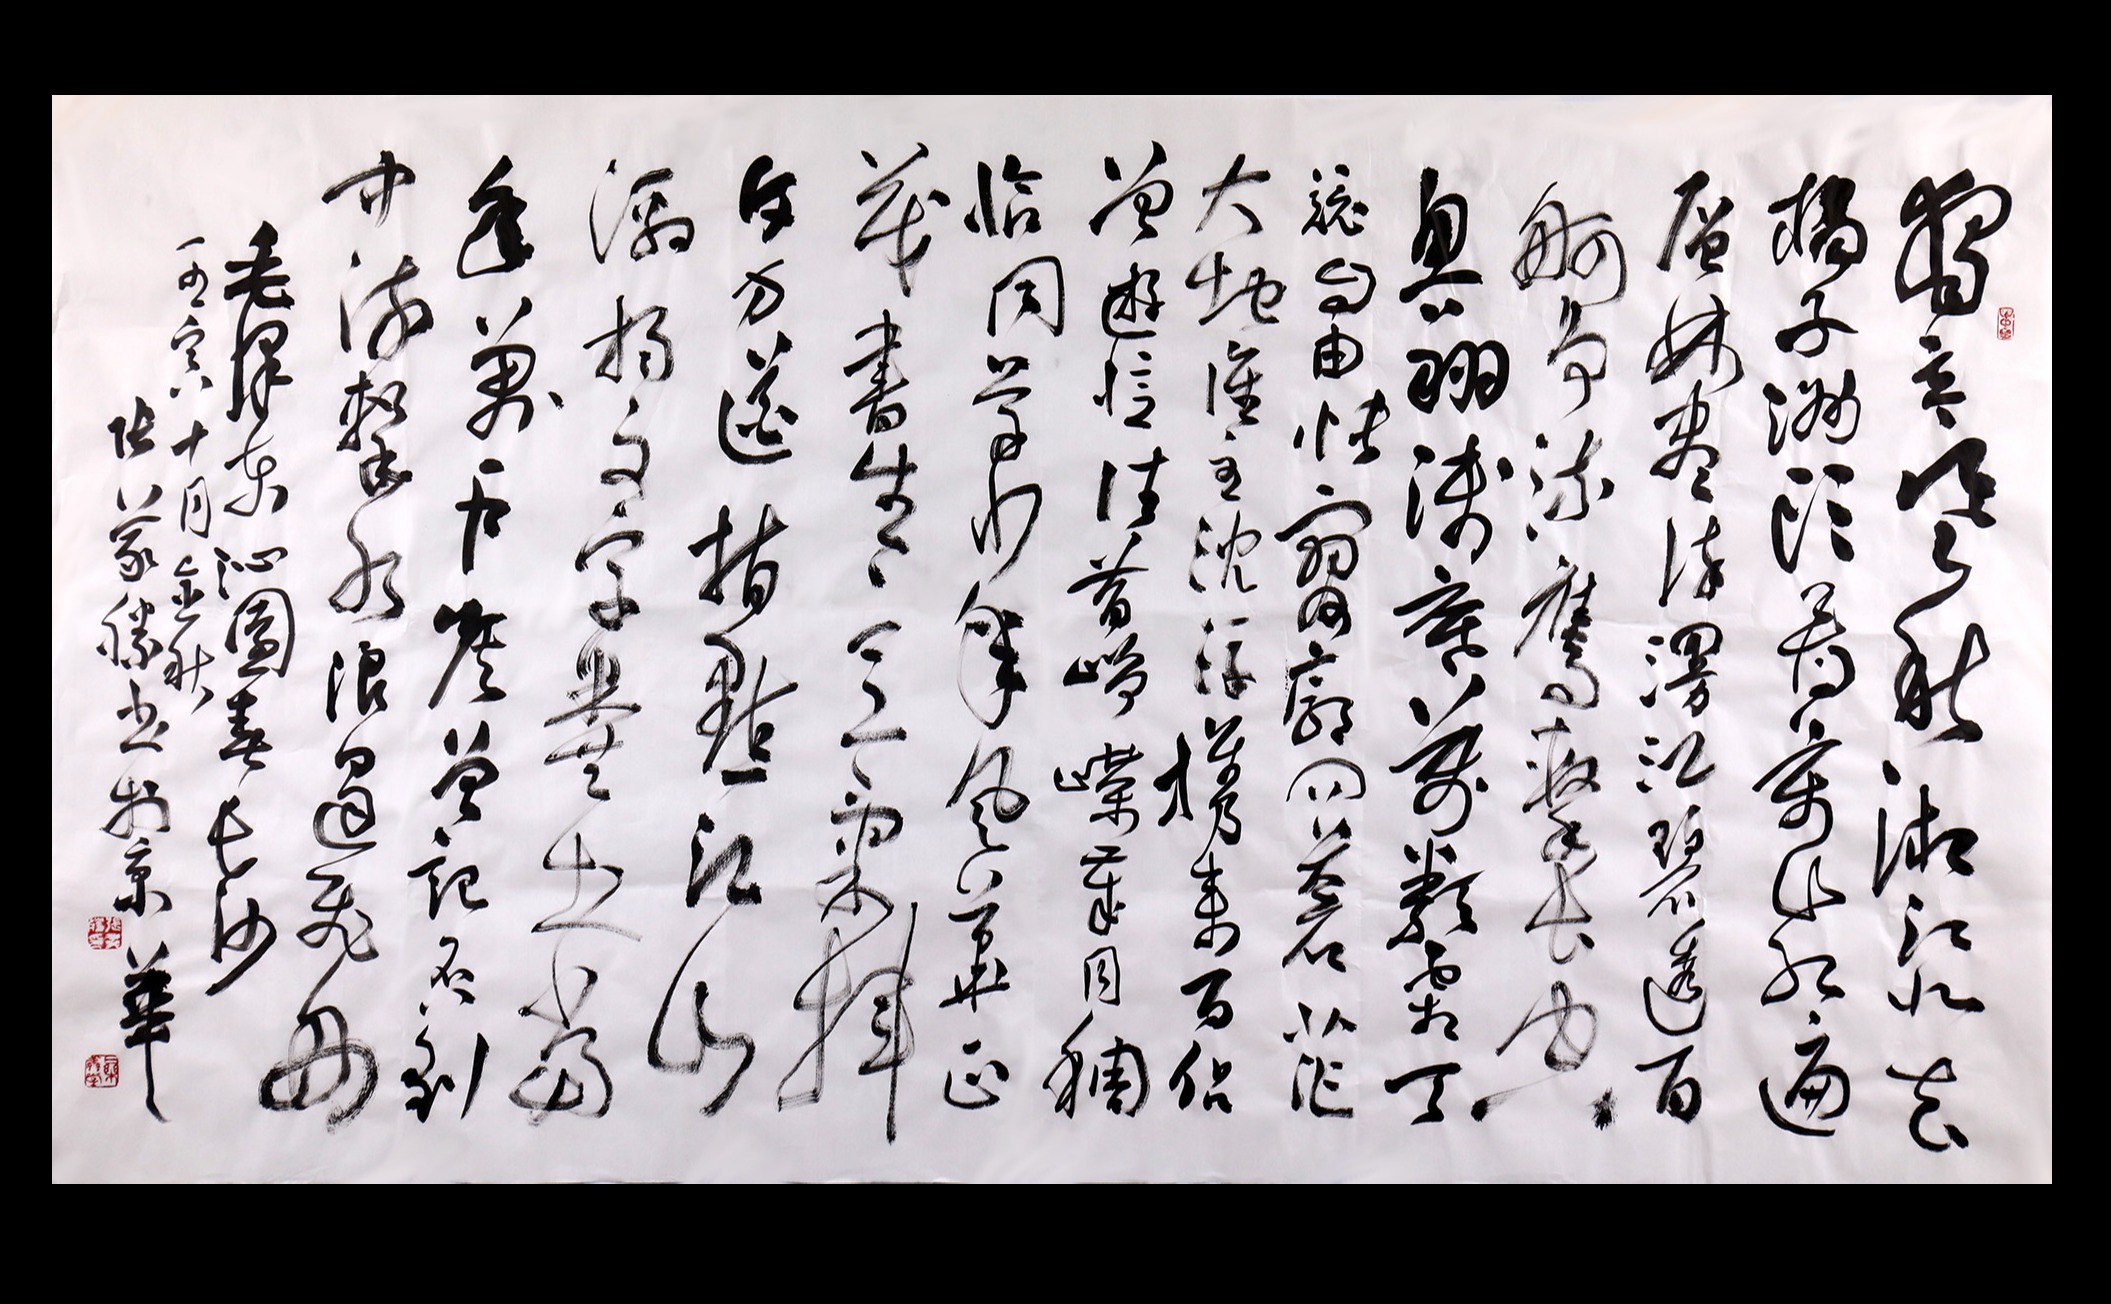 獨立寒秋湘江北去
橘子洲頭看萬山紅遍
層林盡染漫江碧透百
舸爭流鷹擊長空
魚翔淺底萬類霜天
競自由悵寥廓問蒼茫
大地誰主沈浮攜來百侶
曾遊憶往昔崢嶸歲月稠
恰同學少年風華正
茂書生意氣揮
斥方遒指點江山
激揚文字糞土當
年萬戶侯曾記否到
中流擊水浪遏飛舟
毛澤東沁園春長沙
壬寅十月金秋
張義勝書於京華